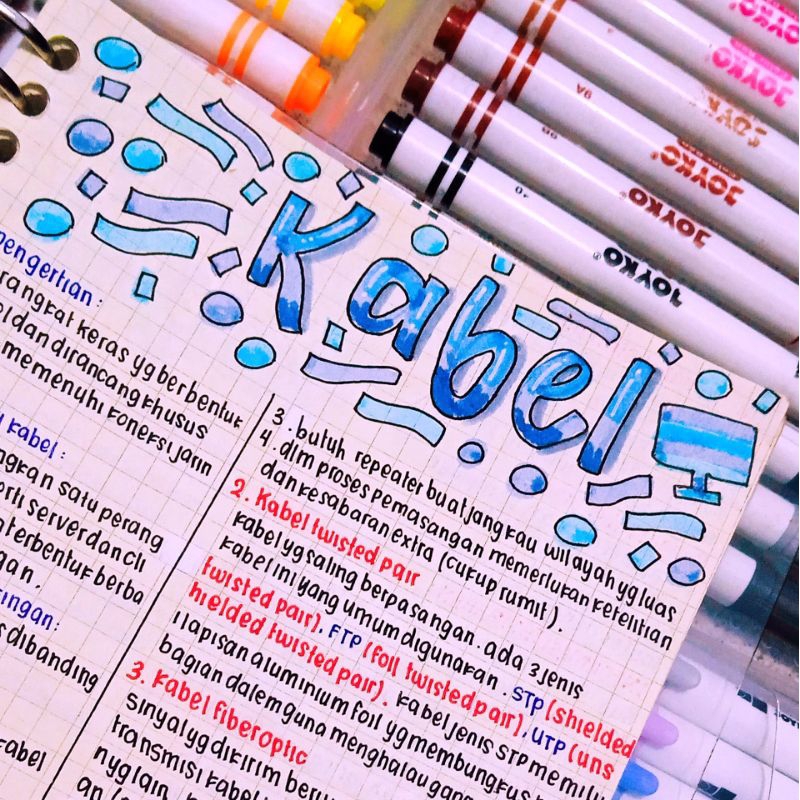 Kabel
pengertian :
rangkat keras yg berbentuk
ol dan dirancang khusus
memenuhi koneksi jarin
kabel :
ngkan satu perang
server dan cli
terbentuk berba
gan.
ringan:
s dibanding
kabel
3. butuh repeater buat jangkau wilayah yg luas
4. dlm proses pemasangan memerlukan ketelitian
dan kesabaran extra (cukup rumit).
2. Kabel twisted pair
kabel yg saling berpasangan. ada 3 jenis
kabel ini yang umum digunakan. STP (shielded
twisted pair), FTP (foil twisted pair), UTP (uns
hielded twisted pair). kabel jenis STP memili
i lapisan aluminium foil yg membungkus
bagian dalem guna menghalau gang
3. kabel fiber optic
sinyal yg dikirim beru
transmisi kabel
nyg lain.
an
JOYKO
JOYKO
JOYKO
JOYKO
JOYKO
JOYKO